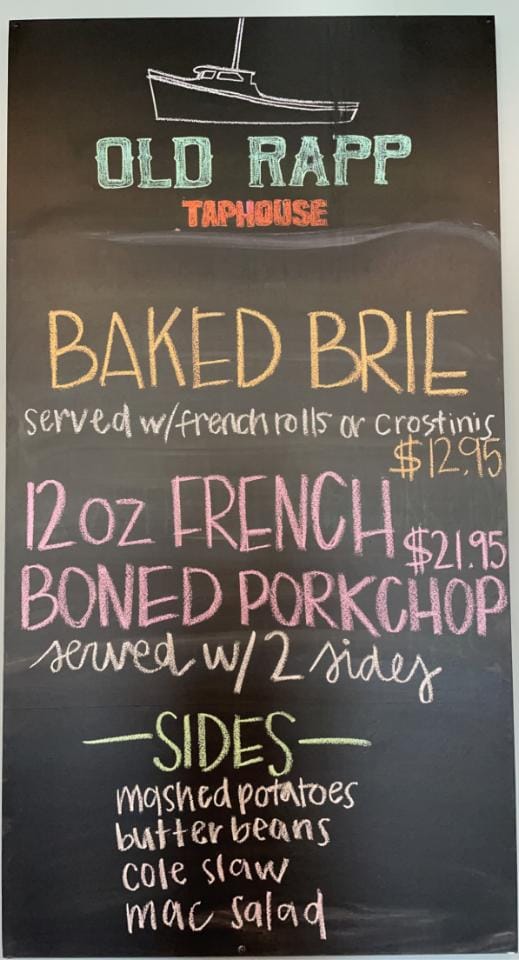 OLD RAPP
TAPHOUSE
BAKED BRIE
served w/french rolls or crostinis
$12.95
12 oz FRENCH
$21.95
BONED PORKCHOP
served w/2 sides
—SIDES—
mashed potatoes
butter beans
cole slaw
mac salad